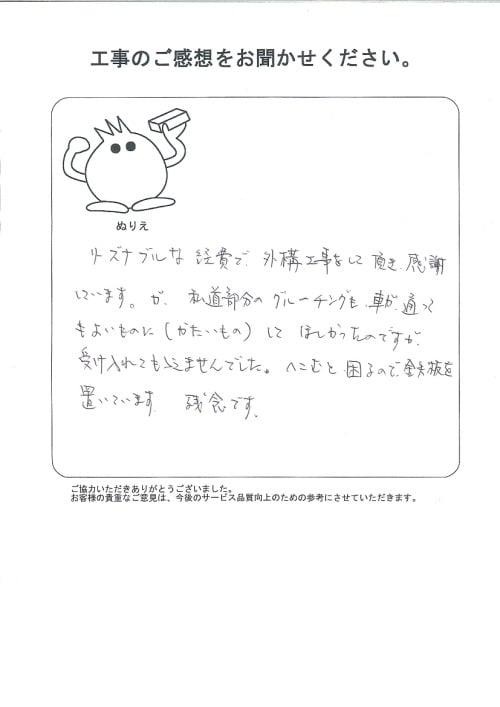 工事のご感想をお聞かせください。
ぬりえ
リーズナブルな経費で、外構工事をして頂き、感謝
しています。が、私道部分のグルーチングも、車が、通って
もよいものに(かたいもの)して ほしかったのですが、
受け入れてもらえませんでした。へこむと、困るので、鉄板を
置いています。 残念です。
ご協力いただきありがとうございました。
お客様の貴重なご意見は、今後のサービス品質向上のための参考にさせていただきます。